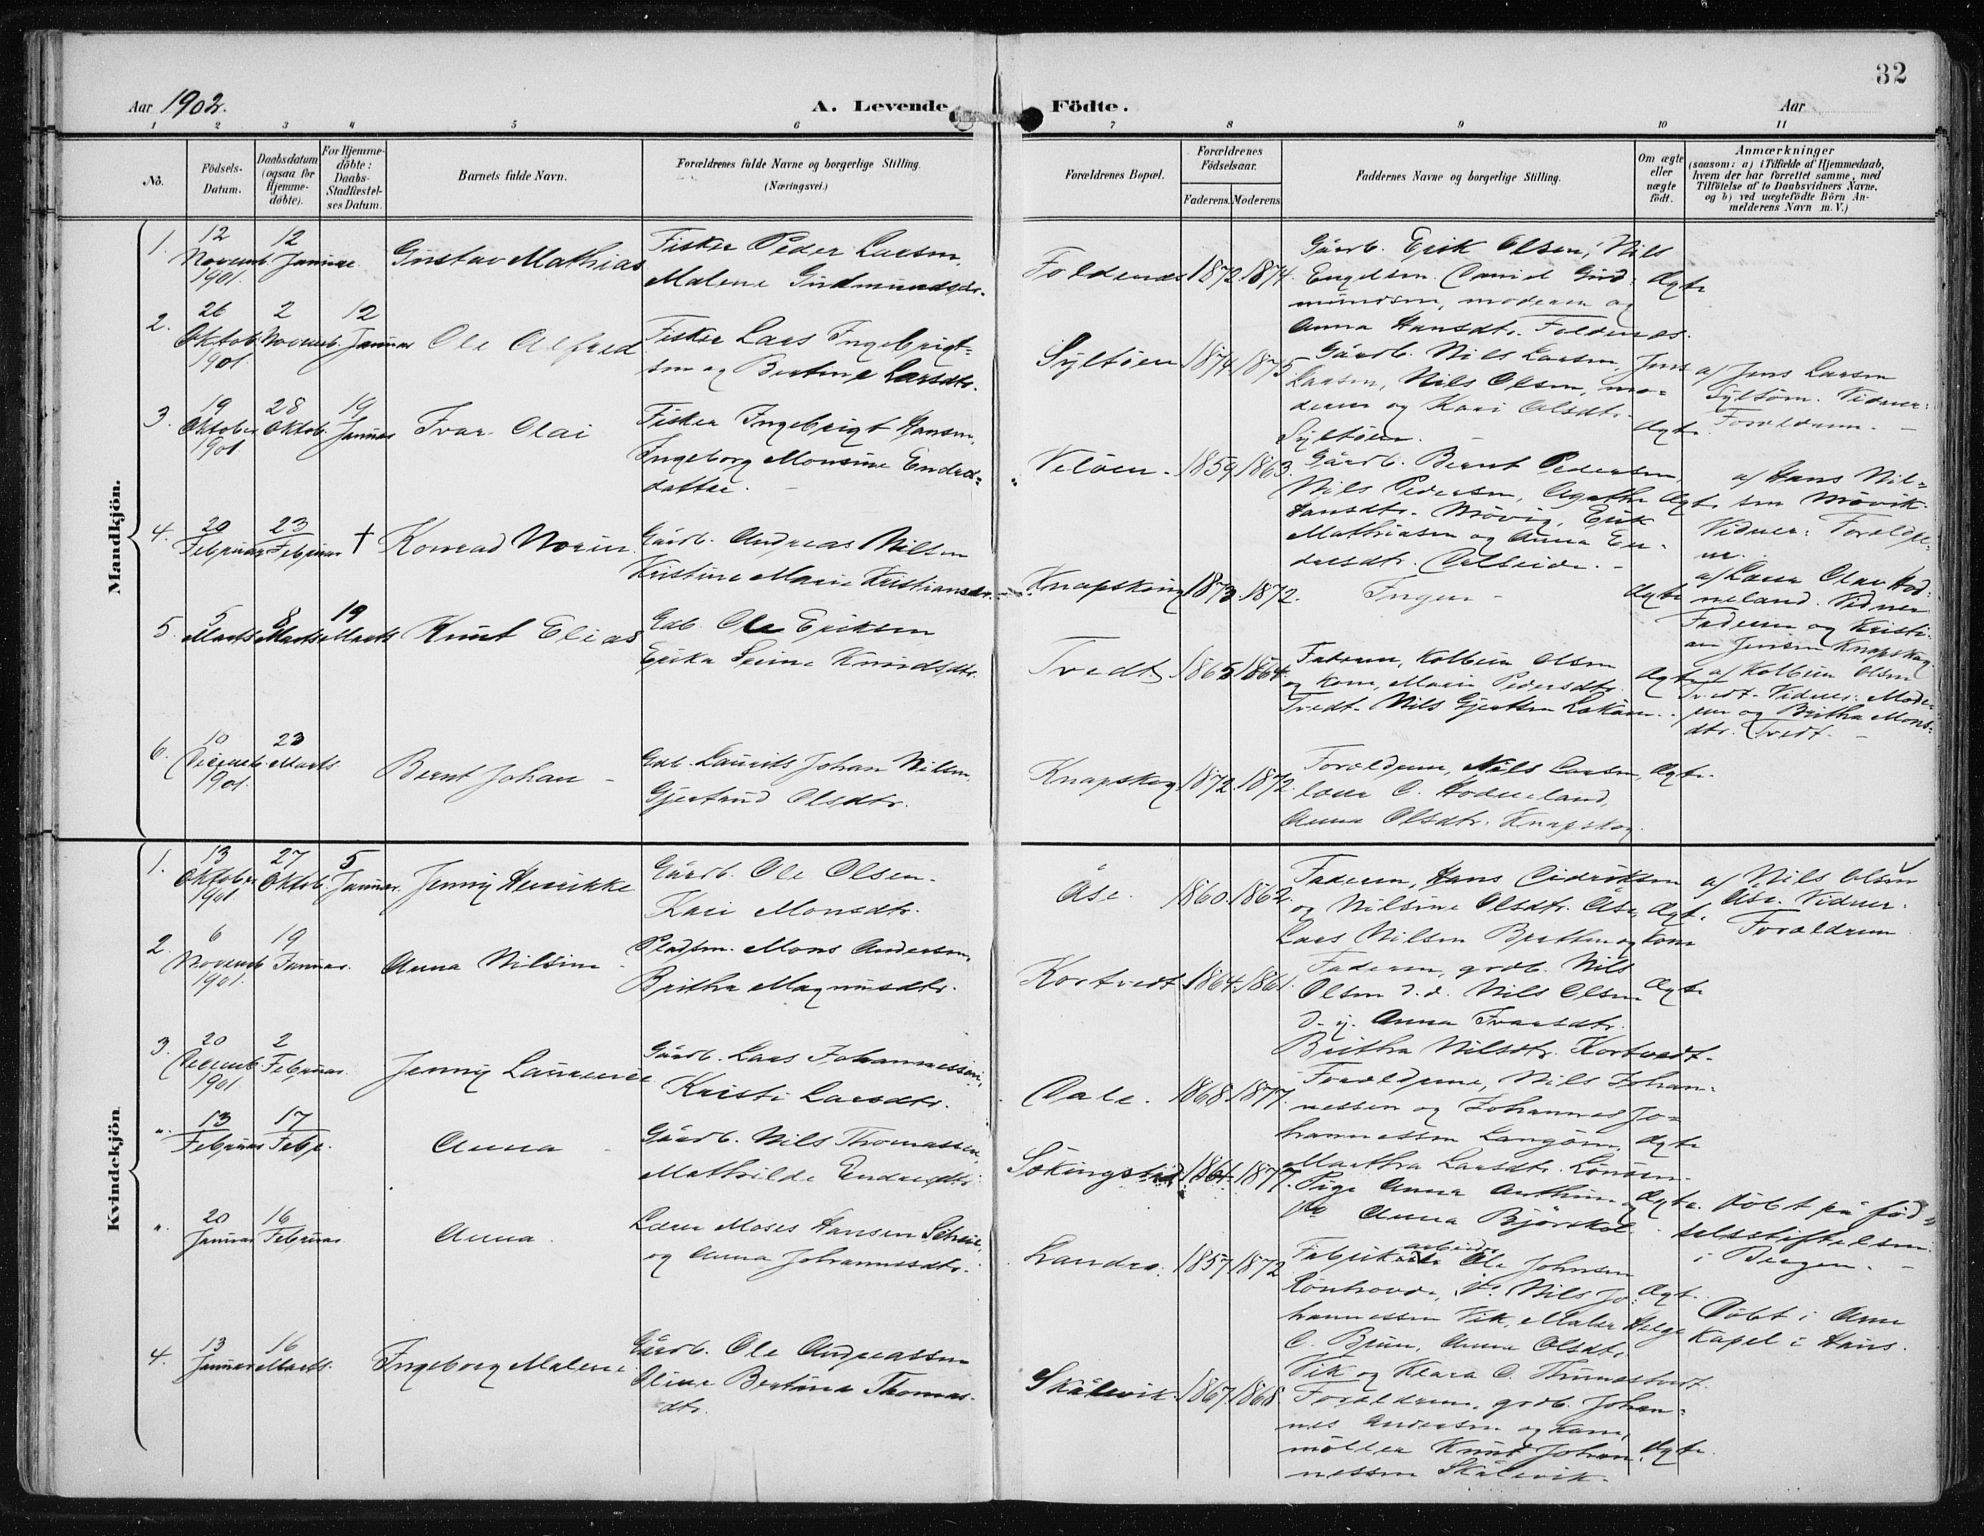 32
Aar 1902.
A. Levende Födte.
Aar
1 2 3 4 5 6 7 8 9 10 11
No.
Födsels-
Datum.
Daabsdatum
(ogsaa for
Hjemme-
döbte).
For Hjemme-
döbte:
Daabs-
Stadfæstel-
ses Datum.
Barnets fulde Navn.
Forældrenes fulde Navne og borgerlige Stilling.
(Næringsvei.)
Forældrenes Bopæl.
Forældrenes
Födselsaar.
Faderens. Moderens.
Faddernes Navne og borgerlige Stilling.
Om ægte
eller
uægte
födt.
Anmærkninger
(saasom: a) i Tilfælde af Hjemmedaab,
hvem der har forrettet samme, med
Tilföielse af to Daabsvidners Navne.
og b) ved uægtefödte Börn An-
melderens Navn m. V.)
Mandkjön.
1.
12
Novemb.
1901.
12
Januar.
Gustav Mathias
Fisker Peder Larsen,
Malene Gudmundsdtr.
Foldenæs
1872. 1874.
Gårdb. Erik Olsen, Nils
Engelsen. David Gud-
mundsen, moderen og
Anna Hansdtr. Foldenæs.
Ægte
2.
26
Oktob.
1901.
2
Novemb.
12
Januar
Ole Alfred
Fisker Lars Ingebrigt-
sen og Bertine Larsdtr.
Syltöen
1874. 1875.
Gårdb. Nils Larsen, Jens
Larsen, Nils Olsen, mo-
deren og Kari Olsdtr.
Syltöen.
Ægte.
af Jens Larsen
Syltöen. Vidner:
Forældrene.
3.
19
Oktober
1901.
28
Oktob.
19
Januar
Ivar Olai
Fisker Ingebrigt Hansen,
Ingeborg Monsine Endres-
datter.
Vilöen.
1859. 1863.
Gårdb. Bernt Pedersen,
Nils Pedersen, Agathe
Hansdtr. Mövig, Erik
Mathiasen og Anna En-
dresdtr.
Ægte
af Hans Nil-
sen Mövik.
Vidner: Forældre-
ne.
4.
20
Februar
23
Februar
†
Konrad Norin
Gårdb. Andreas Nilsen
Kristine Marie Kristiansdtr.
Knapskog
1873. 1872.
Ingen
Ægte
af Lærer Olav Hod-
neland. Vidner
Faderen og Kristi-
an Jensen Knapskog.
5.
5
Marts
8
Marts
19
Marts
Knut Elias
Gdb. Ole Eriksen
Erika Severine Knudsdtr.
Tvedt
1865. 1864.
Faderen, Kolbein Olsen
og kone, Marie Pedersdtr.
Tvedt. Nils Gjertsen
Ægte
af Kolbein Olsen
Tvedt. Vidner: Mode-
ren og Britha Mons-
dtr. Tvedt.
6.
10
Decemb.
1901.
23
Marts.
Bernt Johan
Gdb. Laurits Johan Nilsen,
Gjertrud Olsdtr.
Knapskog
1872. 1872.
Forældrene, Nils Larsen,
lærer O. Hodneland,
Anna Olsdtr. Knapskog.
Ægte.
Kvindekjön.
1.
13
Oktober
1901.
27
Oktob.
5
Januar.
Jenny Henrikke
Gårdb. Ole Olsen.
Kari Monsdtr.
Åse.
1860. 1862.
Faderen, Hans Didriksen
og Nilsine Olsdtr. Åse,
Lars Nilsen Bratten og kone
Ægte.
af Nils Olsen
Åse. Vidner:
Forældrene
2.
6
Novemb.
1901.
19
Januar.
Anna Nilsine
Pladsm. Mons Andersen,
Britha Magnusdtr.
Kortvedt
1864. 1861.
Faderen, gdb. Nils
Olsen d. æ. Nils Olsen
d. y. Anna Ivarsdtr.
Britha Nilsdtr. Kortvedt.
Ægte
3.
20
Decemb.
1901.
2
Februar.
Jenny Laurence
Gårdb. Lars Johannessen,
Kristi Larsdtr.
Dale.
1868. 1877.
Forældrene, Nils Johan-
nessen og Johannes Jo-
hannessen Langöen,
Martha Larsdtr.
Ægte
"
13
Februar
17
Febr.
Anna
Gårdb. Nils Thomassen,
Mathilde Endresdtr.
Sökingstad
1864. 1877.
Pige Anna
Anna
Ægte.
Döbt på föd-
selsstiftelsen
i Bergen.
"
20
Januar
16
Februar
Anna.
Lærer Moses Hansen Schei
og Anna Johannesdtr.
Landro.
1857. 1872
Fabrikarbeider Ole Johnsen
Rönhovde, Nils Jo-
hannessen Vik, Maler Helge
O. Bruun, Anna Olsdtr.
Vik og Klara O.
Ægt.
Döbt i Arne
Kapel i Haus.
4.
13
Januar
16
Marts.
Ingeborg Malene
Gårdb. Ole Andreassen
Oline Bertina Thomas-
dtr.
Skålevik.
1867. 1868.
Forældrene, gdb. Johan-
nes Andersen og kone,
möller Knut Johan-
nessen Skålevik.
Ægte.